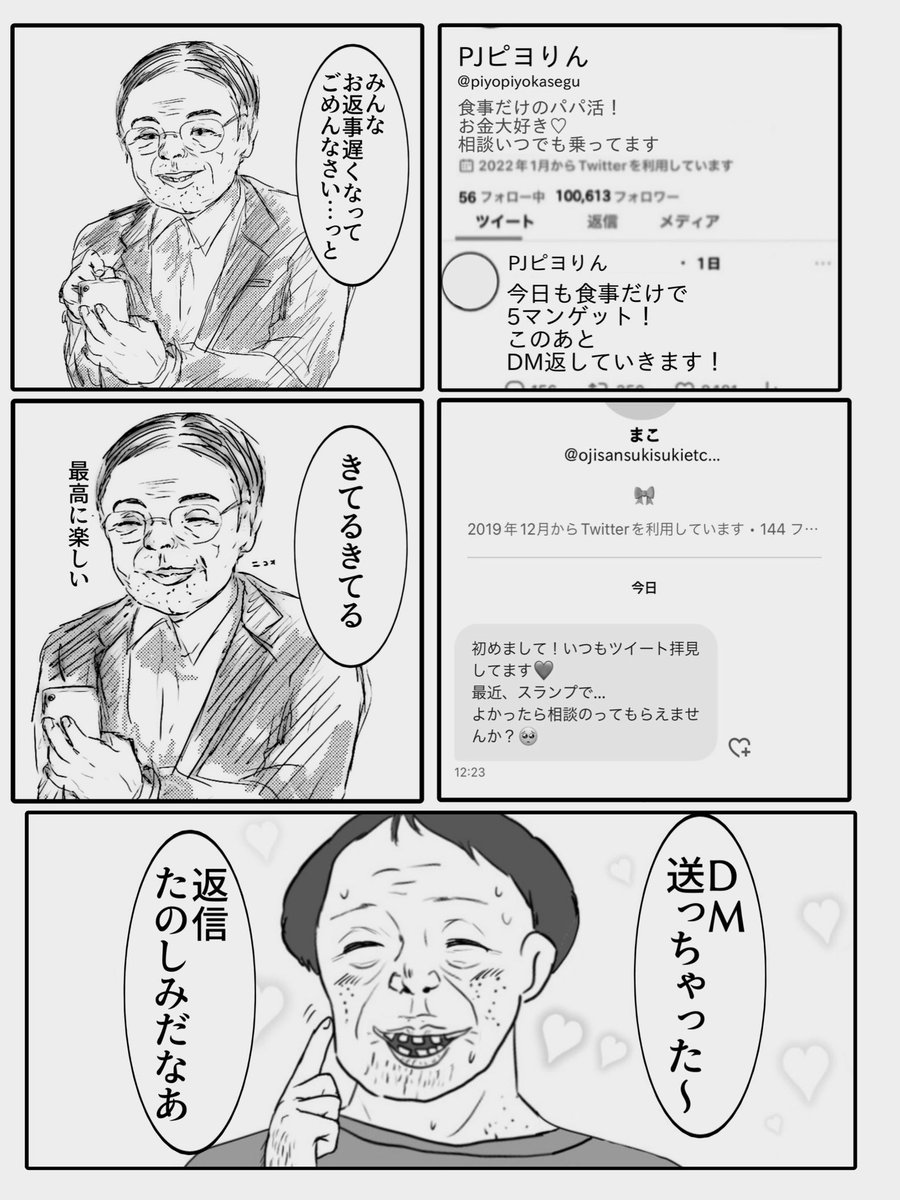 PJピヨりん
@piyopiyokasegu
食事だけのパパ活！
お金大好き♡
相談いつでも乗ってます
2022年1月からTwitterを利用しています
56 フォロー中 100,613 フォロワー
ツイート 返信 メディア
PJピヨりん ・1日 …
今日も食事だけで
5マンゲット！
このあと
DM返していきます！
みんな
お返事遅くなって
ごめんなさい…っと
まこ
@ojisansukisukietc...
🎀
2019年12月からTwitterを利用しています・144 フ…
今日
初めまして！いつもツイート拝見
してます🖤
最近、スランプで…
よかったら相談のってもらえませ
んか？🥺
12:23
きてるきてる
ニコォ
最高に楽しい
DM
送っちゃった〜
返信
たのしみだなあ